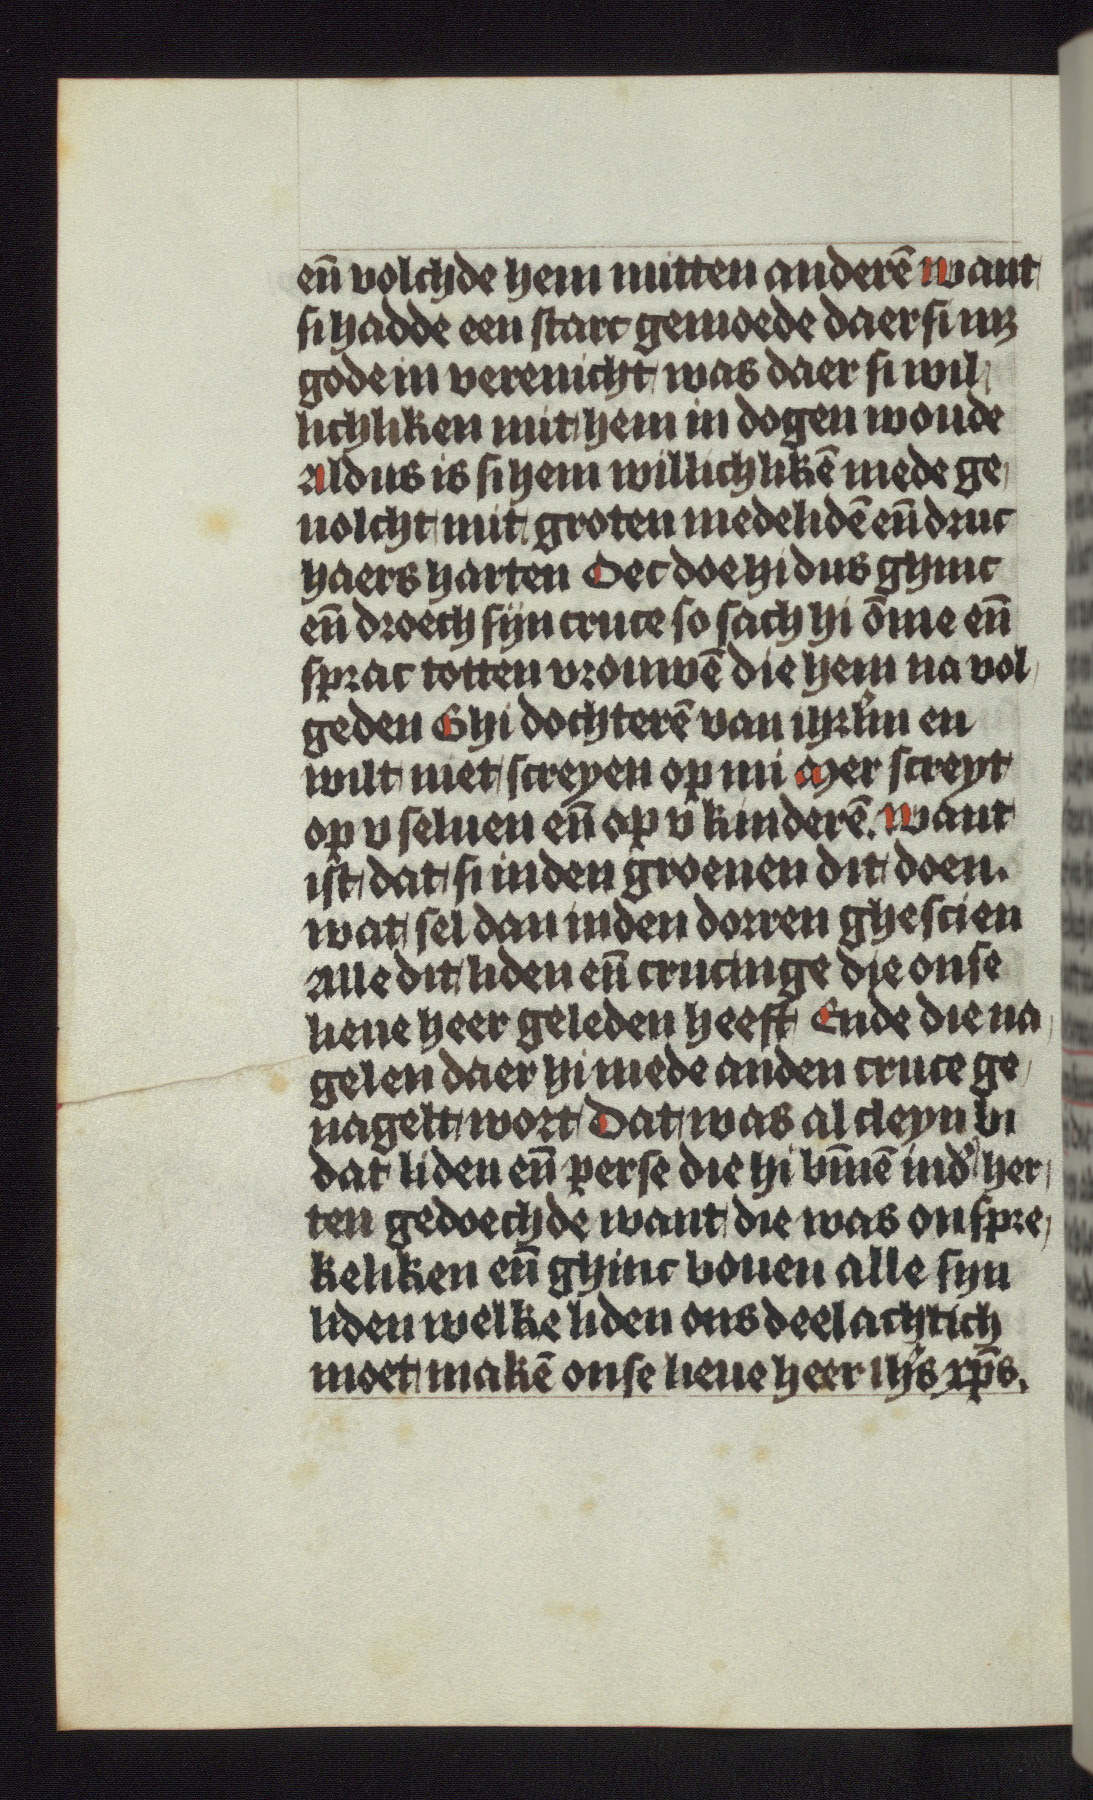 en̄ volchde hem mitten anderē want
si hadde een starc gemoede daer si mꝫ
gode in verenicht was daer si wil
lichliken mit hem in dogen woude
Aldus is si hem willichlikē mede ge
uolcht mit groten medelidē en̄ druc
haers harten Oec doe hi dus ghinc
en̄ droech sijn cruce so sach hi ōme en̄
sprac totten vrouwē die hem na vol
geden Ghi dochterē van ihrlm̄ en
wilt niet screyen op mi Mer screyt
op v seluen en̄ op v̄ kinderē. want
ist dat si inden groenen dit doen.
wat sel dan inden dorren ghescien
Alle dit liden en̄ crucinge die onse
lieue heer geleden heeft Ende die na
gelen daer hi mede anden cruce ge
nagelt wort Dat was al cleyn bi
dat liden en̄ perse die hi bīnē ind̕ her
ten gedoechde want die was onspre
keliken en̄ ghinc bouen alle sijn
liden welke liden ons deelachtich
moet makē onse lieue heer ihs̄ xp̄s.